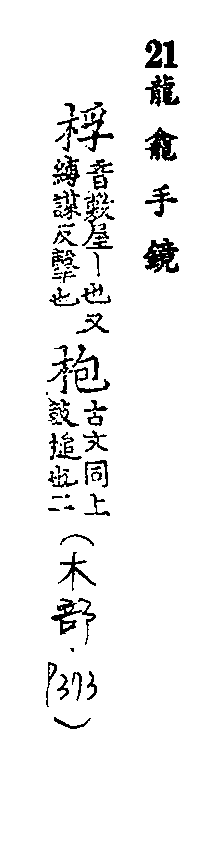 21龍龕手鏡
桴音敷屋丨也又縛謀反擊也枹古文同上鼓搥也二(木部.P373)